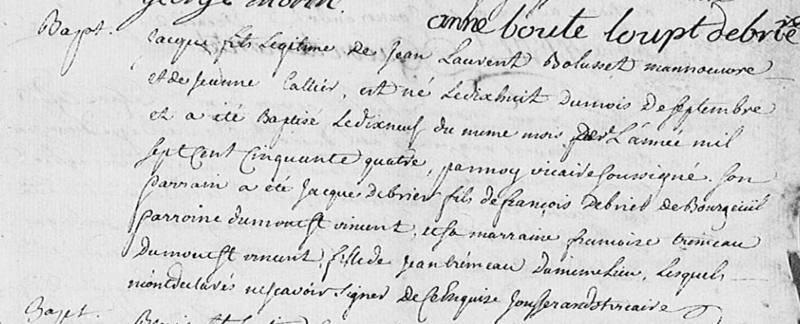 george morin
anne boute loupt debrie
Bapt. Jacque fils Legitime de Jean Laurent Bolusset mannouvre
et de Jeanne Lallier, est né Le dixhuit du mois de septembre
et a été Baptisé Le dixneuf du meme mois de L'année mil
sept Cent Cinquante quatre, par moy vicaire soussigné. son
parrain a été Jacque debrier fils de françois debriel de Bourgeuil
parroine du mont st vincent, et sa marraine francoise tremeau
du mont st vincent, fille de Jean tremeau du meme lieu, Lesquels
m'ont declarés ne scavoir signer de Ce Enquise Jousserandot vicaire
Bapt.